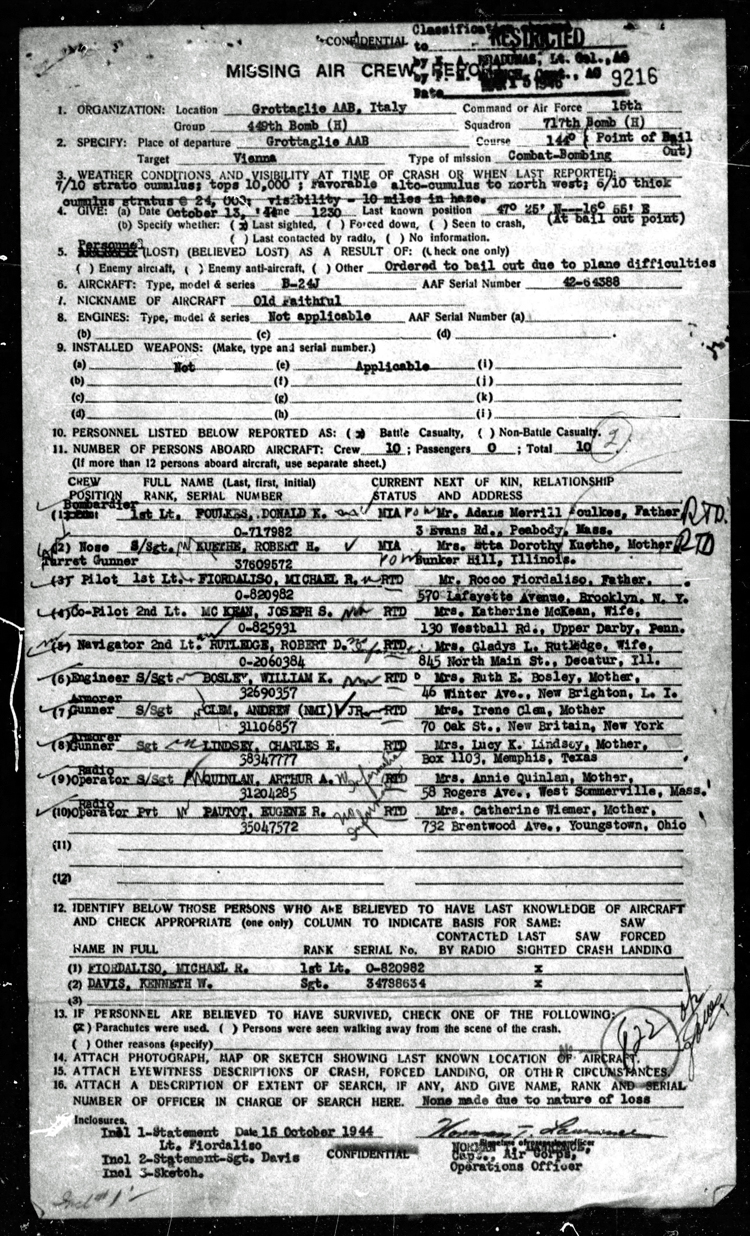 CONFIDENTIAL
Classification
to RESTRICTED
by E. A. BRADUNAS, Lt. Col., AC
Date
9216
MISSING AIR CREW REPORT
1. ORGANIZATION: Location Grottaglie AAB, Italy Command or Air Force 15th
Group 449th Bomb (H) Squadron 717th Bomb (H)
2. SPECIFY: Place of departure Grottaglie AAB Course 144° ( Point of Bail
Target Vienna Type of mission Combat-Bombing Out)
3. WEATHER CONDITIONS AND VISIBILITY AT TIME OF CRASH OR WHEN LAST REPORTED:
7/10 strato cumulus; tops 10,000 ; Favorable alto-cumulus to north west; 6/10 thick
cumulus stratus @ 24,000; visibility - 10 miles in haze.
4. GIVE: (a) Date October 13, '44 Time 1230 Last known position 47° 25' N---16° 55' E
(b) Specify whether: (x) Last sighted, ( ) Forced down, ( ) Seen to crash, (At bail out point)
( ) Last contacted by radio, ( ) No information.
Personnel
5. (LOST) (BELIEVED LOST) AS A RESULT OF: (Check one only)
( ) Enemy aircraft, ( ) Enemy anti-aircraft, ( ) Other Ordered to bail out due to plane difficulties
6. AIRCRAFT: Type, model & series B-24J AAF Serial Number 42-64388
7. NICKNAME OF AIRCRAFT Old Faithful
8. ENGINES: Type, model & series Not applicable AAF Serial Number (a)
(b) (c) (d)
9. INSTALLED WEAPONS: (Make, type and serial number.)
(a) Not (e) Applicable (i)
(b) (f) (j)
(c) (g) (k)
(d) (h) (i)
10. PERSONNEL LISTED BELOW REPORTED AS: (x) Battle Casualty, ( ) Non-Battle Casualty. 2
11. NUMBER OF PERSONS ABOARD AIRCRAFT: Crew 10 ; Passengers 0 ; Total 10
(If more than 12 persons aboard aircraft, use separate sheet.)
CREW FULL NAME (Last, first, initial) CURRENT NEXT OF KIN, RELATIONSHIP
POSITION RANK, SERIAL NUMBER STATUS AND ADDRESS
Bombardier
(1) 1st Lt. FOULKES, DONALD K. MIA POW Mr. Adams Merrill Foulkes, Father RTD.
0-717982 3 Evans Rd., Peabody, Mass.
(2) Nose S/Sgt. KUETHE, ROBERT H. MIA Mrs. Etta Dorothy Kuethe, Mother RTD
Turret Gunner 37609572 POW Bunker Hill, Illinois.
(3) Pilot 1st Lt. FIORDALISO, MICHAEL R. RTD Mr. Rocco Fiordaliso, Father.
0-820982 570 Lafayette Avenue, Brooklyn, N. Y.
(4) Co-Pilot 2nd Lt. MC KEAN, JOSEPH S. RTD Mrs. Katherine McKean, Wife,
0-825931 130 Westball Rd., Upper Darby, Penn.
(5) Navigator 2nd Lt. RUTLEDGE, ROBERT D. RTD Mrs. Gladys L. Rutledge, Wife,
0-2060384 845 North Main St., Decatur, Ill.
(6) Engineer S/Sgt BOSLEY, WILLIAM K. RTD Mrs. Ruth E. Bosley, Mother,
32690357 46 Winter Ave., New Brighton, L. I.
Armorer
(7) Gunner S/Sgt CLEM, ANDREW (NMI) JR. RTD Mrs. Irene Clem, Mother
31106857 70 Oak St., New Britain, New York
Armorer
(8) Gunner Sgt LINDSEY, CHARLES E. RTD Mrs. Lucy K. Lindsey, Mother,
38347777 Box 1103, Memphis, Texas
Radio
(9) Operator S/Sgt QUINLAN, ARTHUR A. No Information RTD Mrs. Annie Quinlan, Mother,
31204285 58 Rogers Ave., West Sommerville, Mass.
Radio
(10) Operator Pvt PAUTOT, EUGENE R. No Information RTD Mrs. Catherine Wiemer, Mother,
35047572 732 Brentwood Ave., Youngstown, Ohio
(11)
(12)
12. IDENTIFY BELOW THOSE PERSONS WHO ARE BELIEVED TO HAVE LAST KNOWLEDGE OF AIRCRAFT
AND CHECK APPROPRIATE (one only) COLUMN TO INDICATE BASIS FOR SAME: SAW
CONTACTED LAST SAW FORCED
NAME IN FULL RANK SERIAL No. BY RADIO SIGHTED CRASH LANDING
(1) FIORDALISO, MICHAEL R. 1st Lt. 0-820982 x
(2) DAVIS, KENNETH W. Sgt. 34798634 x
(3)
13. IF PERSONNEL ARE BELIEVED TO HAVE SURVIVED, CHECK ONE OF THE FOLLOWING:
(x) Parachutes were used. ( ) Persons were seen walking away from the scene of the crash.
( ) Other reasons (specify)
14. ATTACH PHOTOGRAPH, MAP OR SKETCH SHOWING LAST KNOWN LOCATION OF AIRCRAFT.
15. ATTACH EYEWITNESS DESCRIPTIONS OF CRASH, FORCED LANDING, OR OTHER CIRCUMSTANCES.
16. ATTACH A DESCRIPTION OF EXTENT OF SEARCH, IF ANY, AND GIVE NAME, RANK AND SERIAL
NUMBER OF OFFICER IN CHARGE OF SEARCH HERE. None made due to nature of loss
Inclosures.
Incl 1-Statement Date 15 October 1944
Lt. Fiordaliso
Incl 2-Statement-Sgt. Davis CONFIDENTIAL Capt., Air Corps,
Incl 3-Sketch. Operations Officer